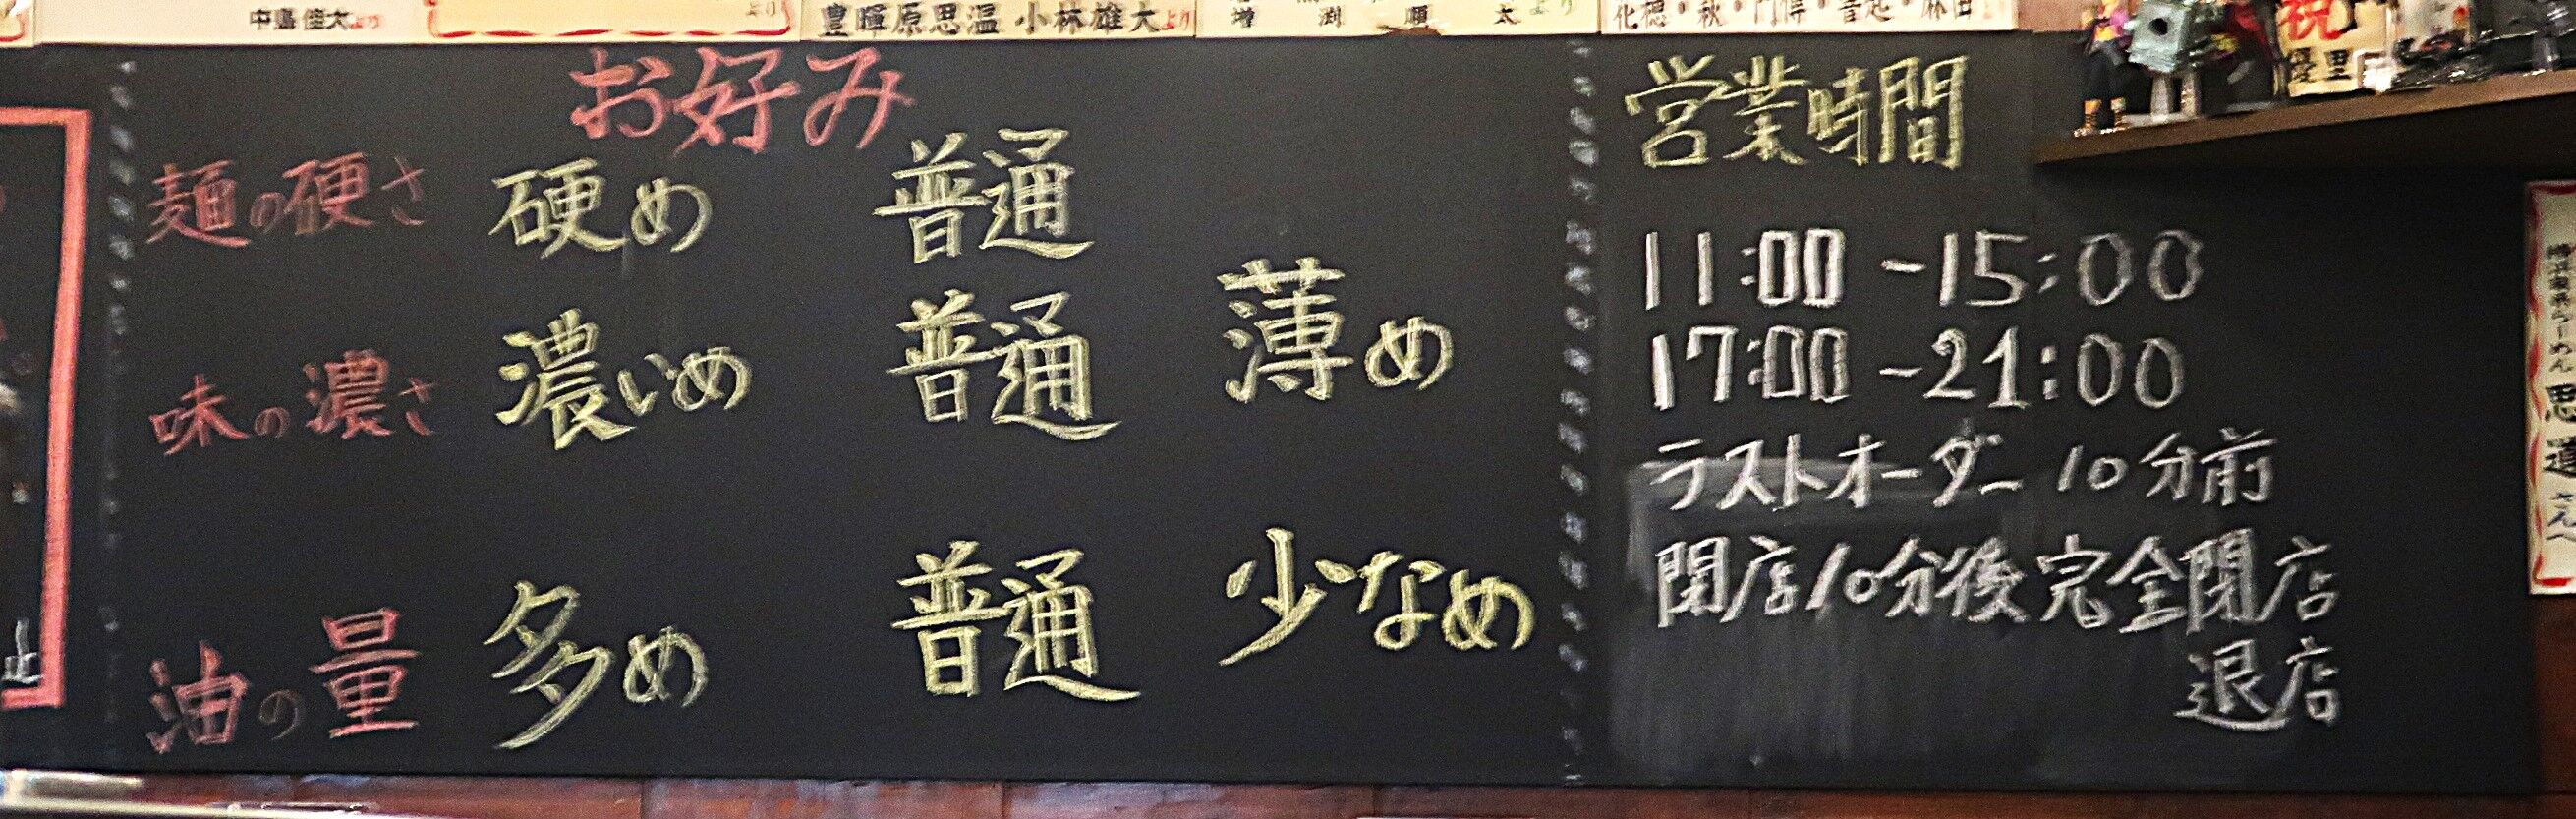 中島佳太より
より
豊暉原思温 小林雄大より
祝
優里
お好み
麺の硬さ 硬め 普通
味の濃さ 濃いめ 普通 薄め
油の量 多め 普通 少なめ
営業時間
11:00-15:00
17:00-21:00
ラストオーダー 10分前
閉店10分後完全閉店
退店